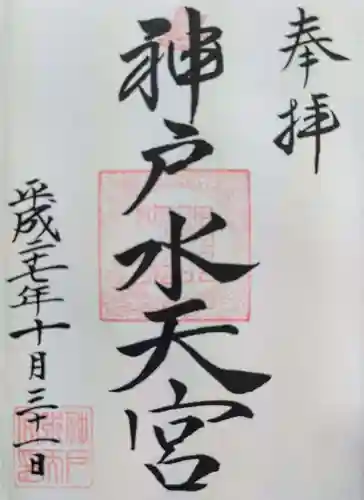 奉拝
神戸水天宮
平成二十七年十月三十一日